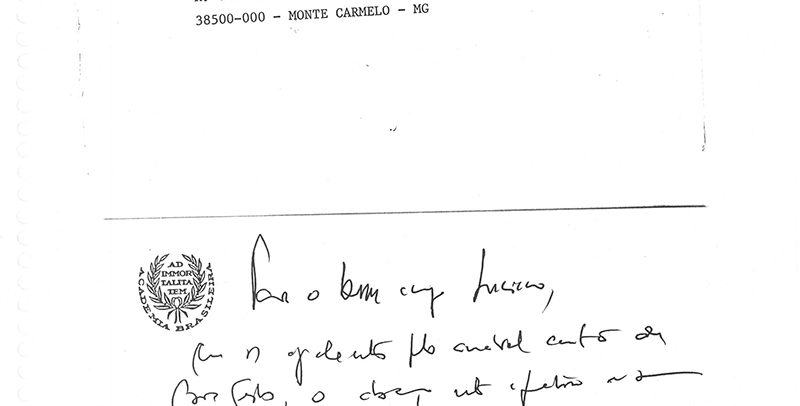 38500-000 - MONTE CARMELO - MG
AD
IMMOR
TALITA
TEM
ACADEMIA BRASILEIRA
Para o bom amigo
com os agradecimentos pelo amável cartão de
Boas Festas, o abraço muito afetivo